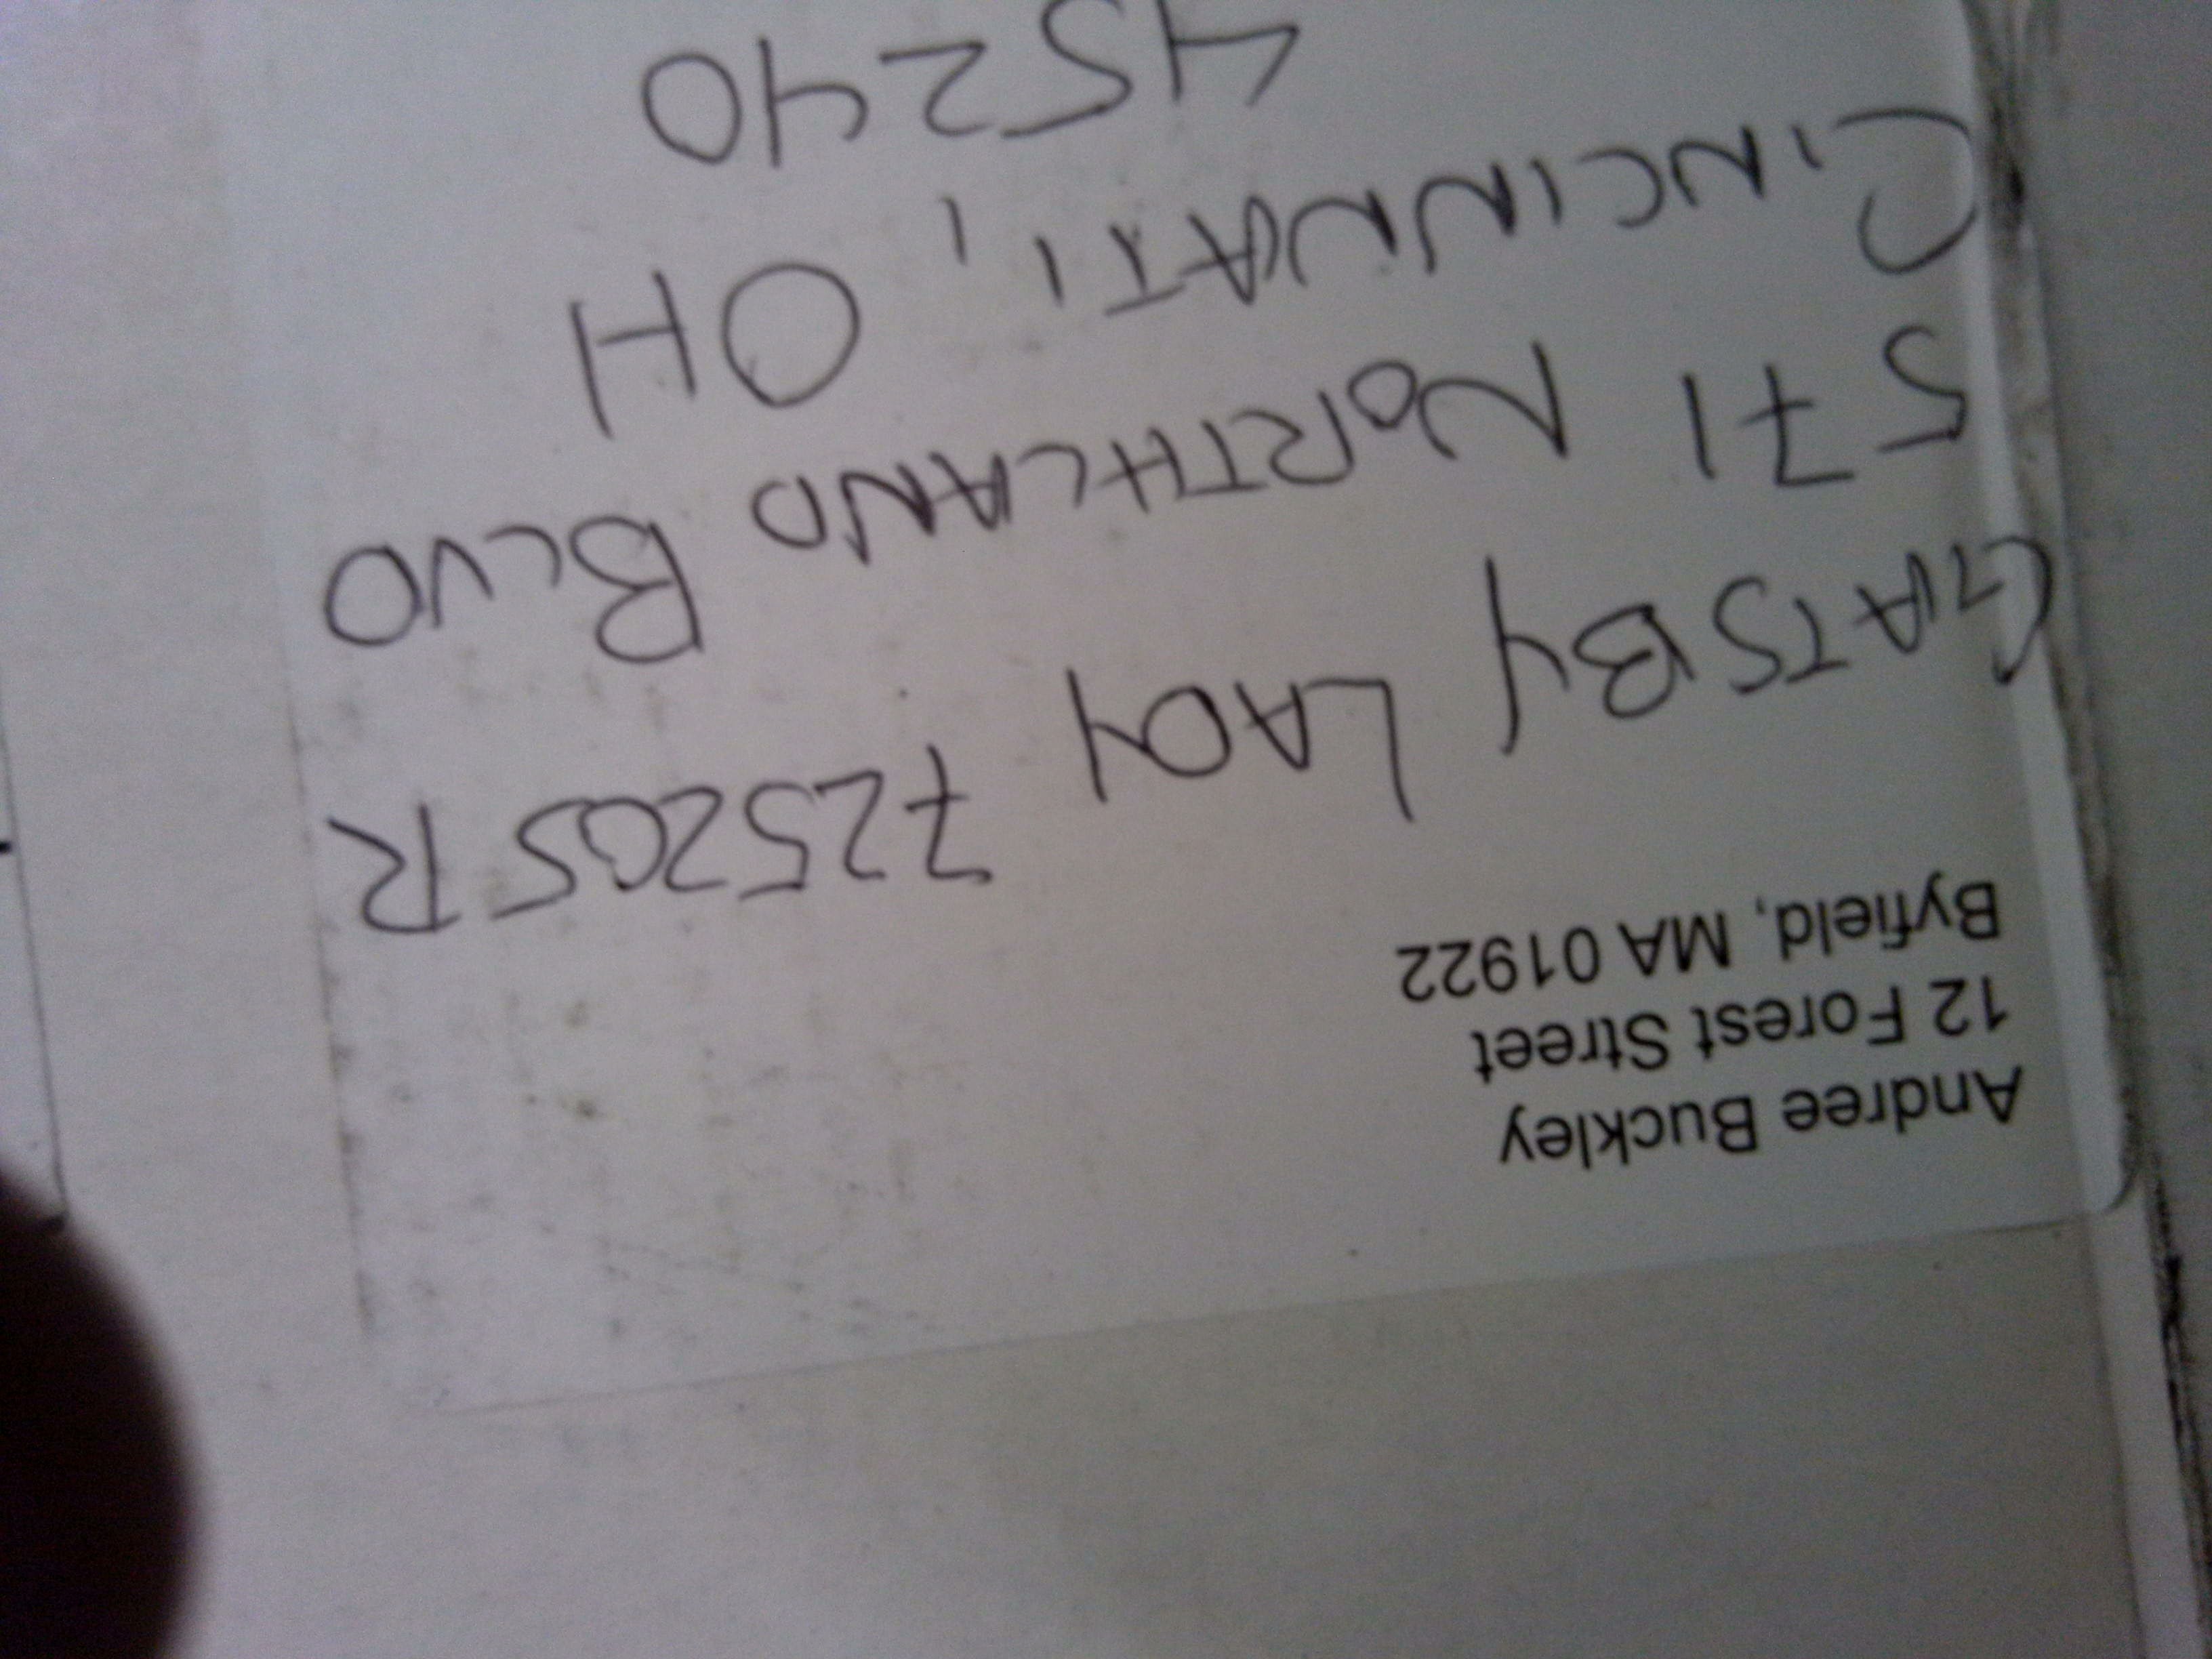 Andree Buckley
12 Forest Street
Byfield, MA 01922
GATSBY LADY 725205R
571 NORTHLAND BLVD
CINCINNATI, OH
45240